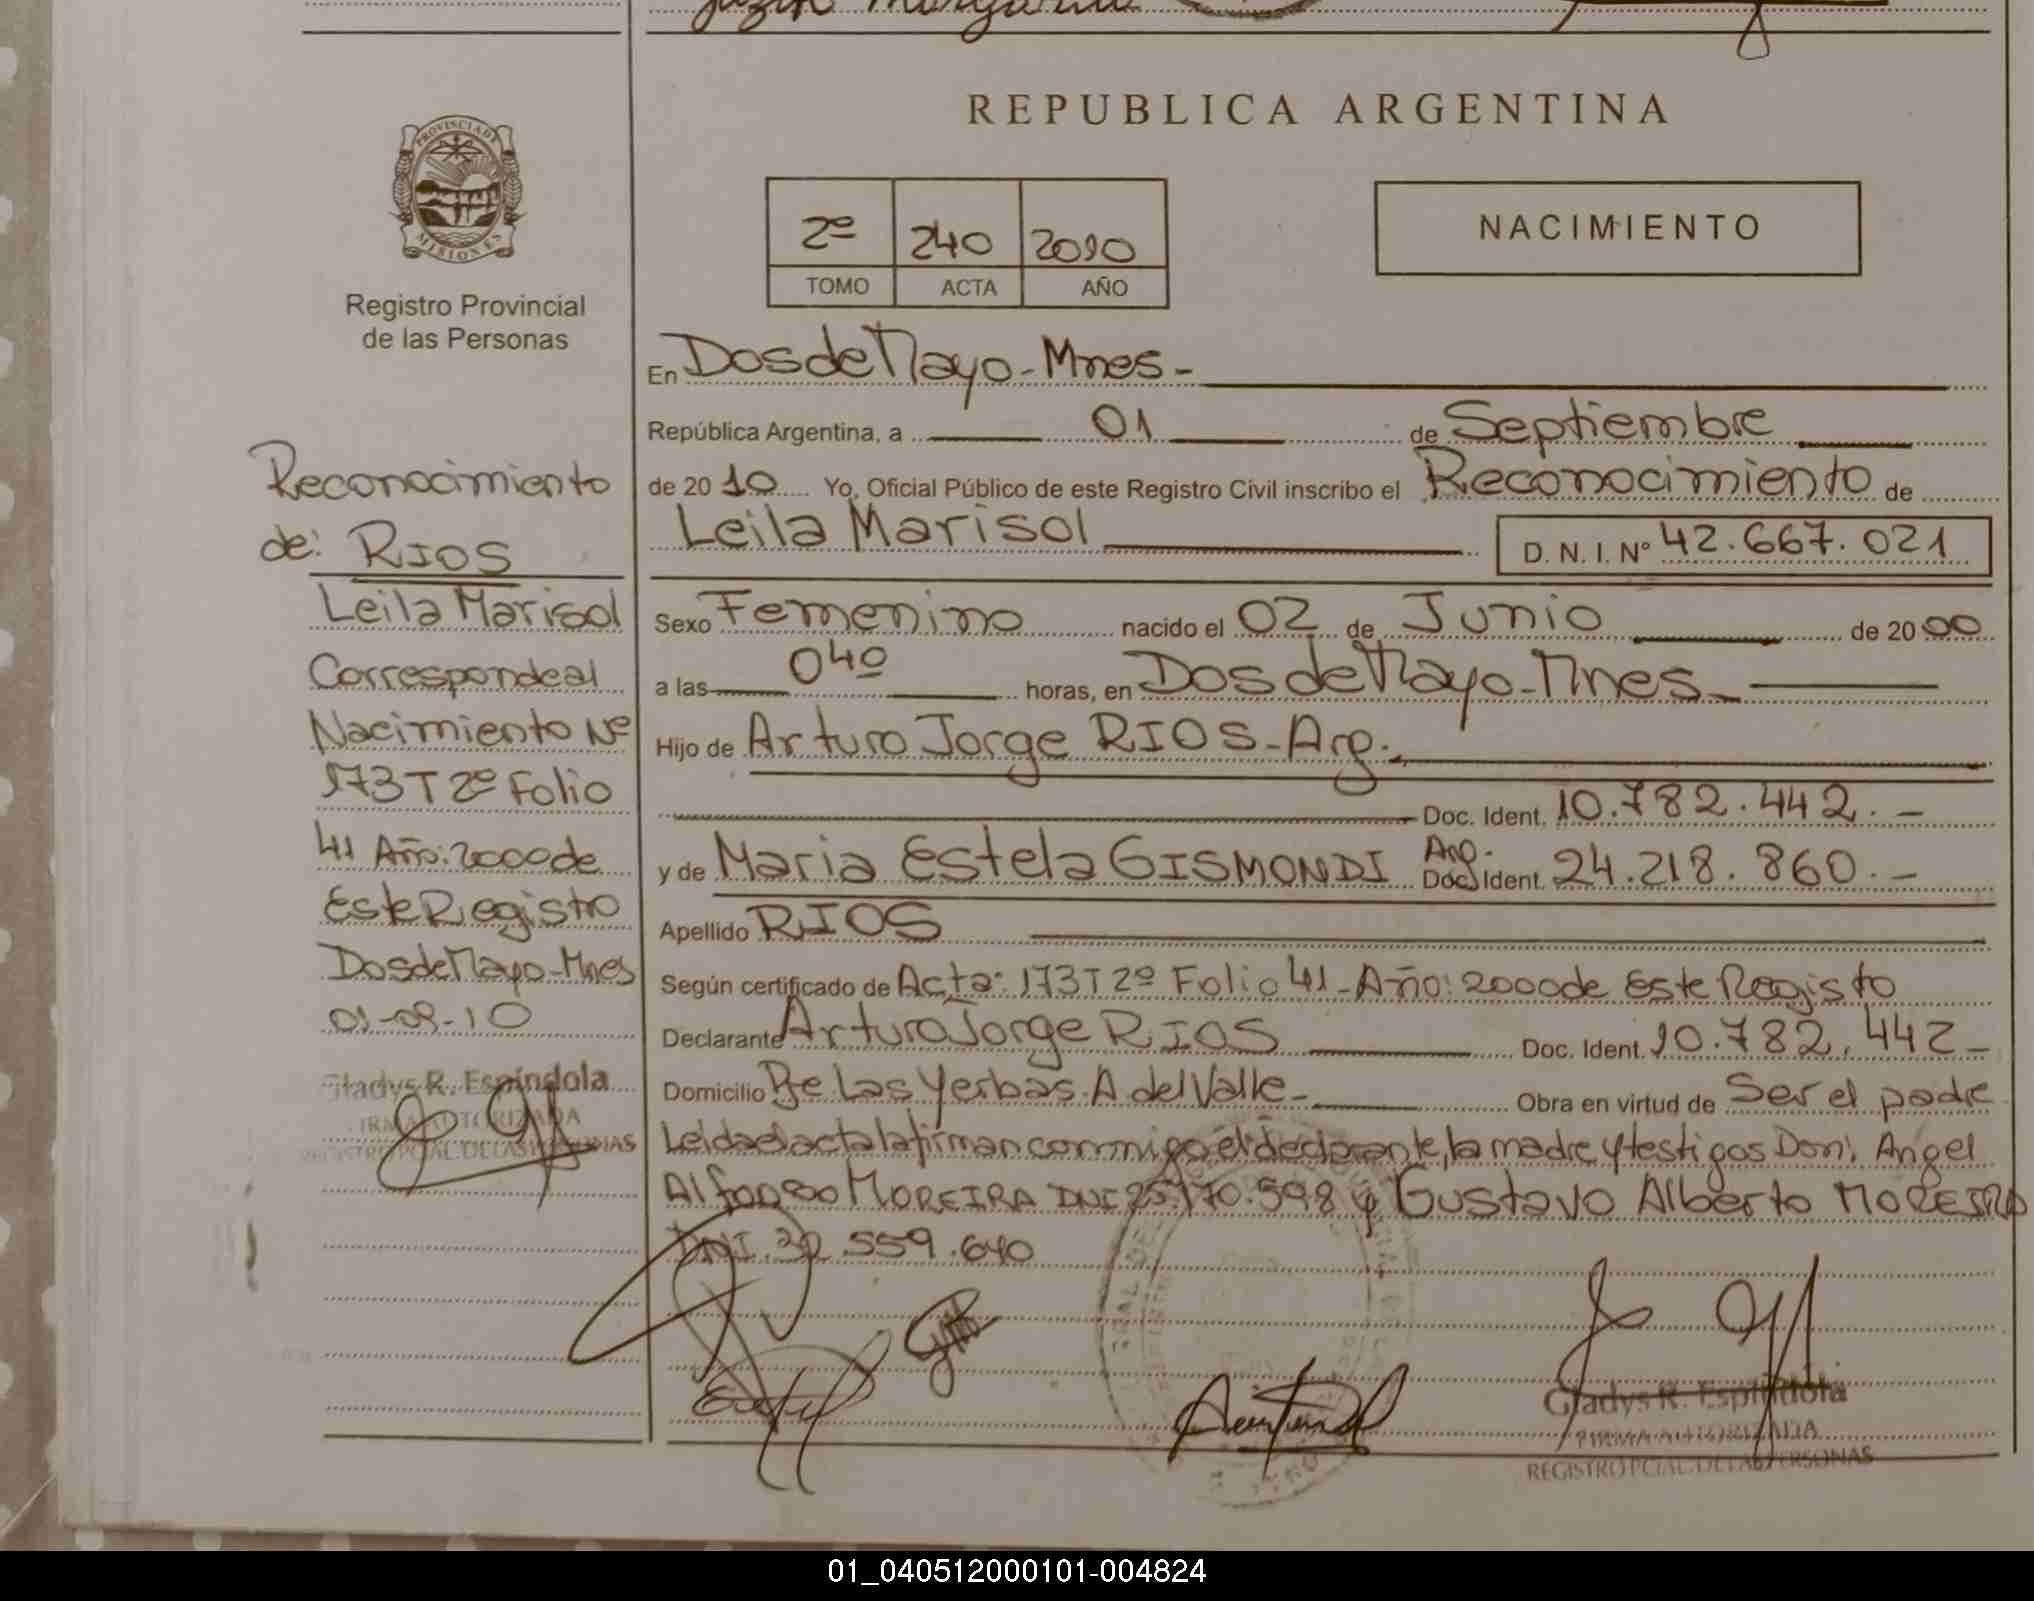 REPUBLICA ARGENTINA
PROVINCIA DE
MISIONES
Registro Provincial
de las Personas
2º 240 2010
TOMO ACTA AÑO
NACIMIENTO
En Dos de Mayo - Mnes -
República Argentina, a 01 de Septiembre
de 20 10 Yo, Oficial Público de este Registro Civil inscribo el Reconocimiento de
Leila Marisol D. N. I. Nº 42.667.021
Sexo Femenino nacido el 02 de Junio de 20 00
a las 04º horas, en Dos de Mayo - Mnes -
Hijo de Arturo Jorge RIOS - Arg.
Doc. Ident. 10.782.442.-
y de Maria Estela GISMONDI Arg. Doc. Ident. 24.218.860.-
Apellido RIOS
Según certificado de Acta: 173 T 2º Folio 41 - Año: 2000 de Este Registo
Declarante Arturo Jorge RIOS Doc. Ident. 10.782.442-
Domicilio Pje Las Yerbas. A del Valle - Obra en virtud de Ser el padre
Leida el acta la firman conmigo el declarante, la madre y testigos Don: Angel
Alfonso MOREIRA DNI 25.170.598 y Gustavo Alberto MOREIRA
DNI. 32.559.640
Gladys R. Espíndola
FIRMA AUTORIZADA
REGISTRO PCIAL. DE LAS PERSONAS
Reconocimiento
de: RIOS
Leila Marisol
Corresponde al
Nacimiento Nº
173 T 2º Folio
41 Año: 2000 de
Este Registro
Dos de Mayo - Mnes
01-09-10
Gladys R. Espíndola
FIRMA AUTORIZADA
REGISTRO PCIAL. DE LAS PERSONAS
01_040512000101-004824